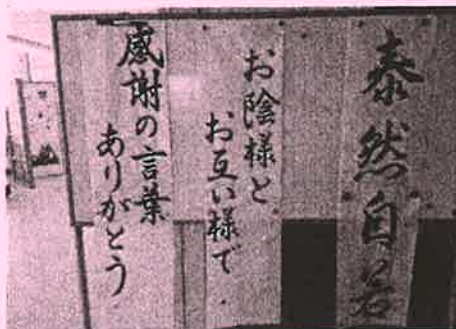 泰然自若
お陰様と
お互い様で
感謝の言葉
ありがとう